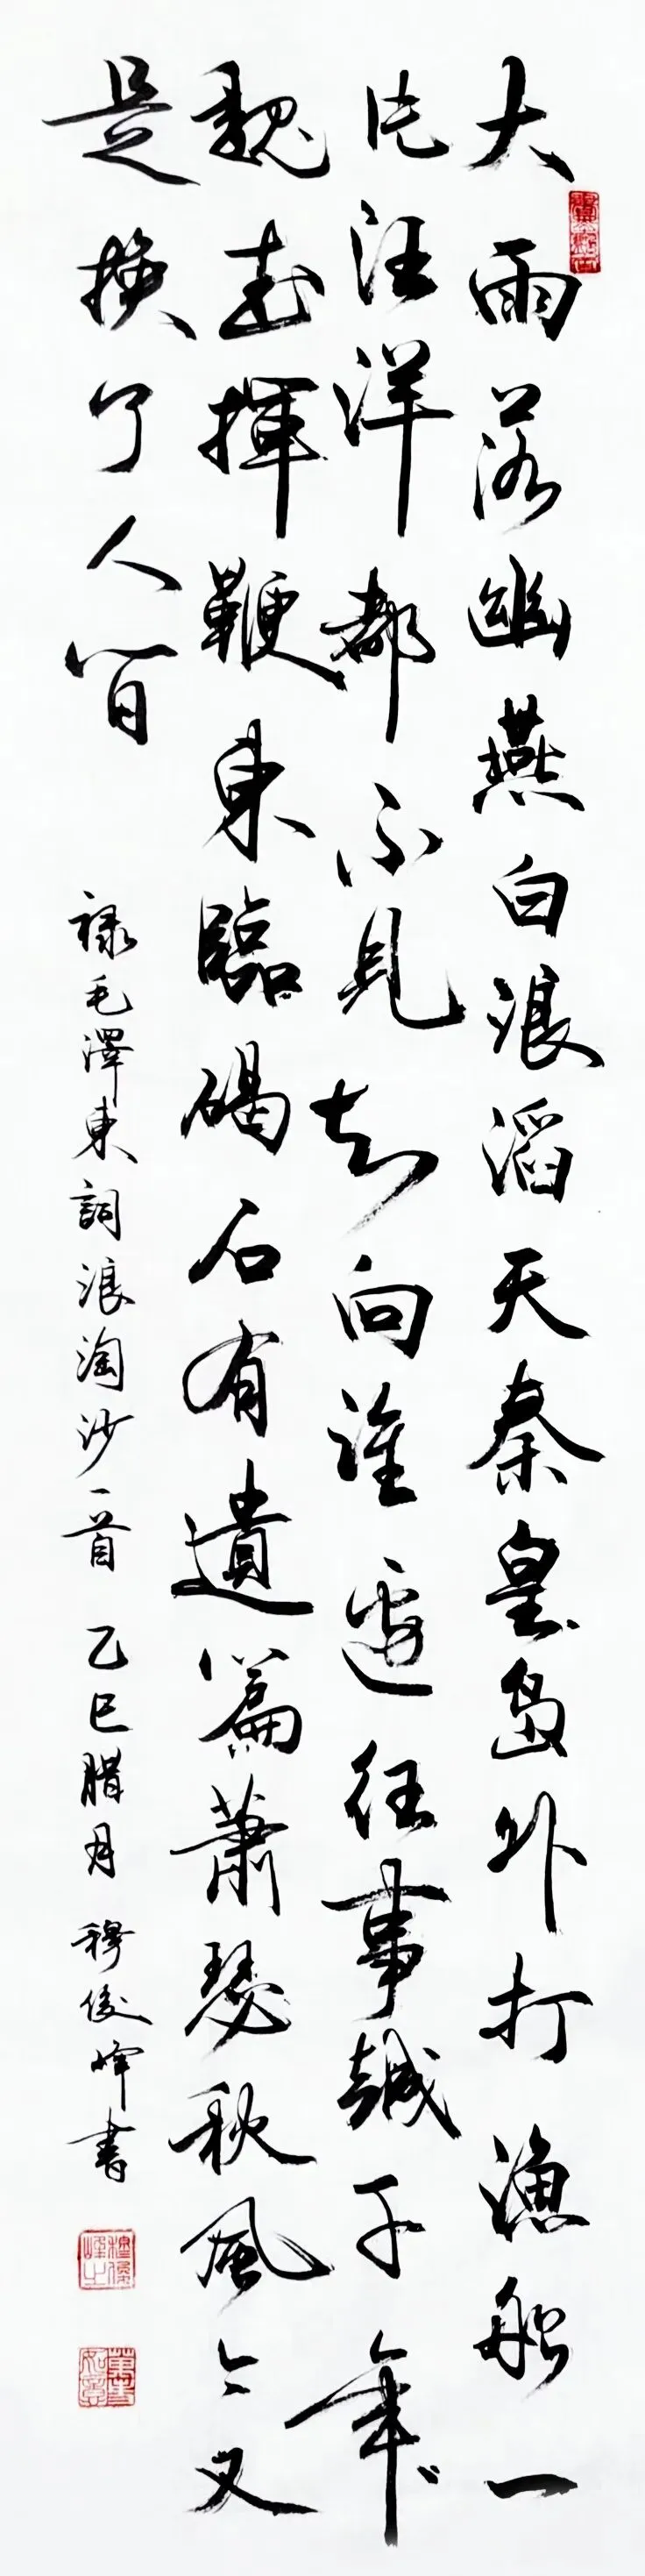 大雨落幽燕白浪滔天秦皇島外打漁船一
片汪洋都不見知向誰邊往事越千年
魏武揮鞭東臨碣石有遺篇蕭瑟秋風今又
是換了人間
禄毛澤東詞浪淘沙一首 乙巳腊月 穆俊峰書
萬事如意